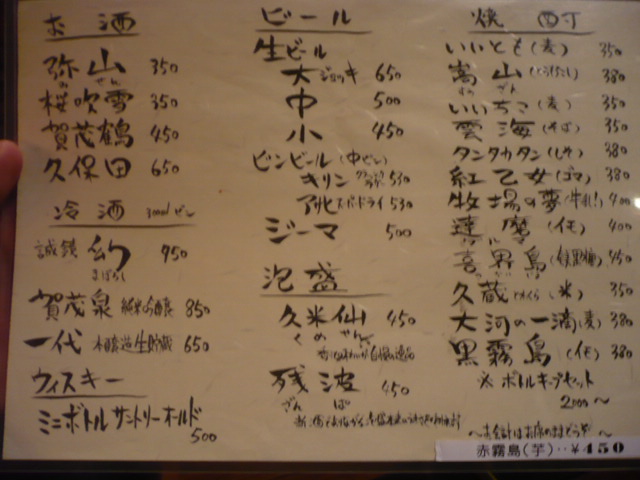 お酒
弥山 350
桜吹雪 350
賀茂鶴 450
久保田 650
冷酒 300ml ビン
誠鏡 幻 950
まぼろし
賀茂泉 純米吟醸 850
一代 本醸造生貯蔵 650
ウィスキー
ミニボトル サントリーオールド
500
ビール
生ビール
大 ジョッキ 650
中 500
小 450
ビンビール (中ビン)
キリン 530
アサヒ スーパードライ 530
ジーマ 500
泡盛
久米仙 450
くめせん
残波 450
ざんぱ
焼酎
いいとも (麦) 350
嵩山 380
いいちこ (麦) 350
雲海 (そば) 350
タンタカタン (しそ) 380
紅乙女 (ゴマ) 380
牧場の夢 (牛乳) 400
達磨 (イモ) 400
喜界島 (黒糖) 450
久蔵 (米) 350
大河の一滴 (麦) 380
黒霧島 (イモ) 380
※ ボトルキープセット
2000〜
〜お会計はお席のままどうぞ〜
赤霧島(芋)‥¥450